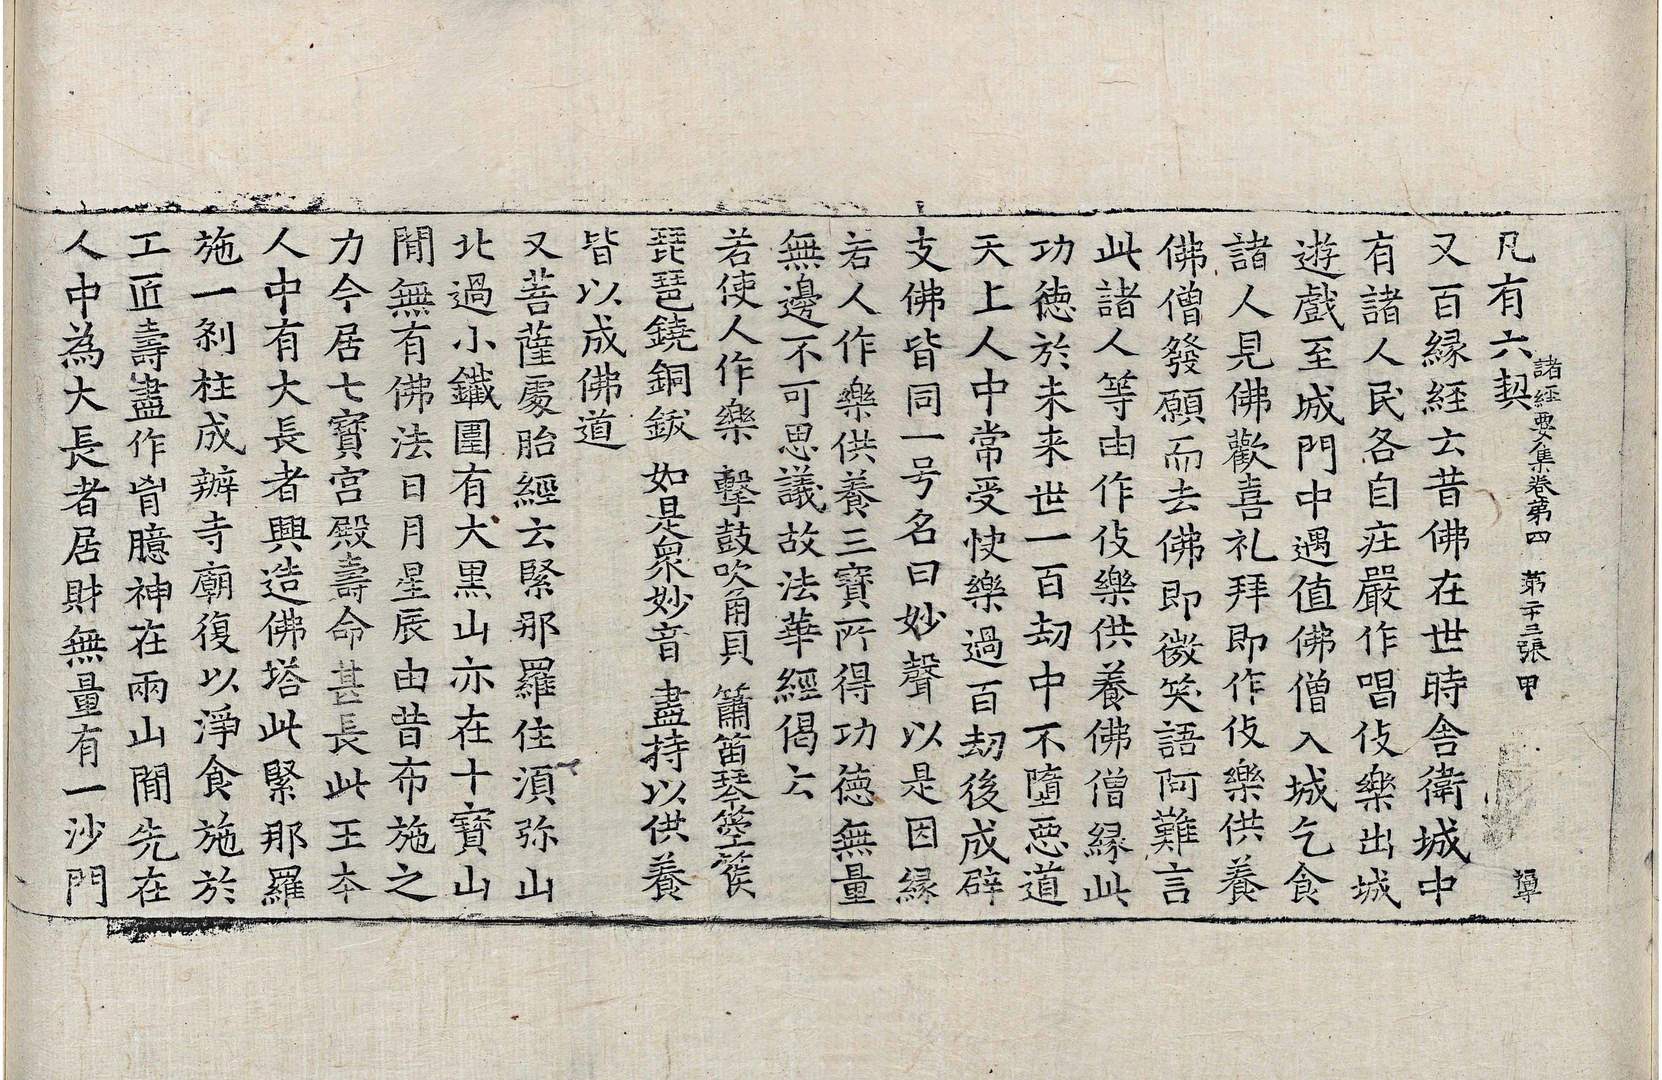 諸經要集卷第四 第二十三張 甲 禪
凡有六契
又百緣經云昔佛在世時舍衛城中
有諸人民各自莊嚴作唱伎樂出城
遊戲至城門中遇值佛僧入城乞食
諸人見佛歡喜礼拜即作伎樂供養
佛僧發願而去佛即微笑語阿難言
此諸人等由作伎樂供養佛僧緣此
功德於未来世一百劫中不墮惡道
天上人中常受快樂過百劫後成辟
支佛皆同一号名曰妙聲以是因緣
若人作樂供養三寶所得功德無量
無邊不可思議故法華經偈云
若使人作樂 擊鼓吹角貝 簫笛琴箜篌
琵琶鐃銅鈸 如是衆妙音 盡持以供養
皆以成佛道
又菩薩處胎經云緊那羅住須弥山
北過小鐵圍有大黑山亦在十寶山
閒無有佛法日月星辰由昔布施之
力今居七寶宮殿壽命甚長此王本
人中有大長者興造佛塔此緊那羅
施一刹柱成辦寺廟復以淨食施於
工匠壽盡作胷臆神在兩山閒先在
人中為大長者居財無量有一沙門